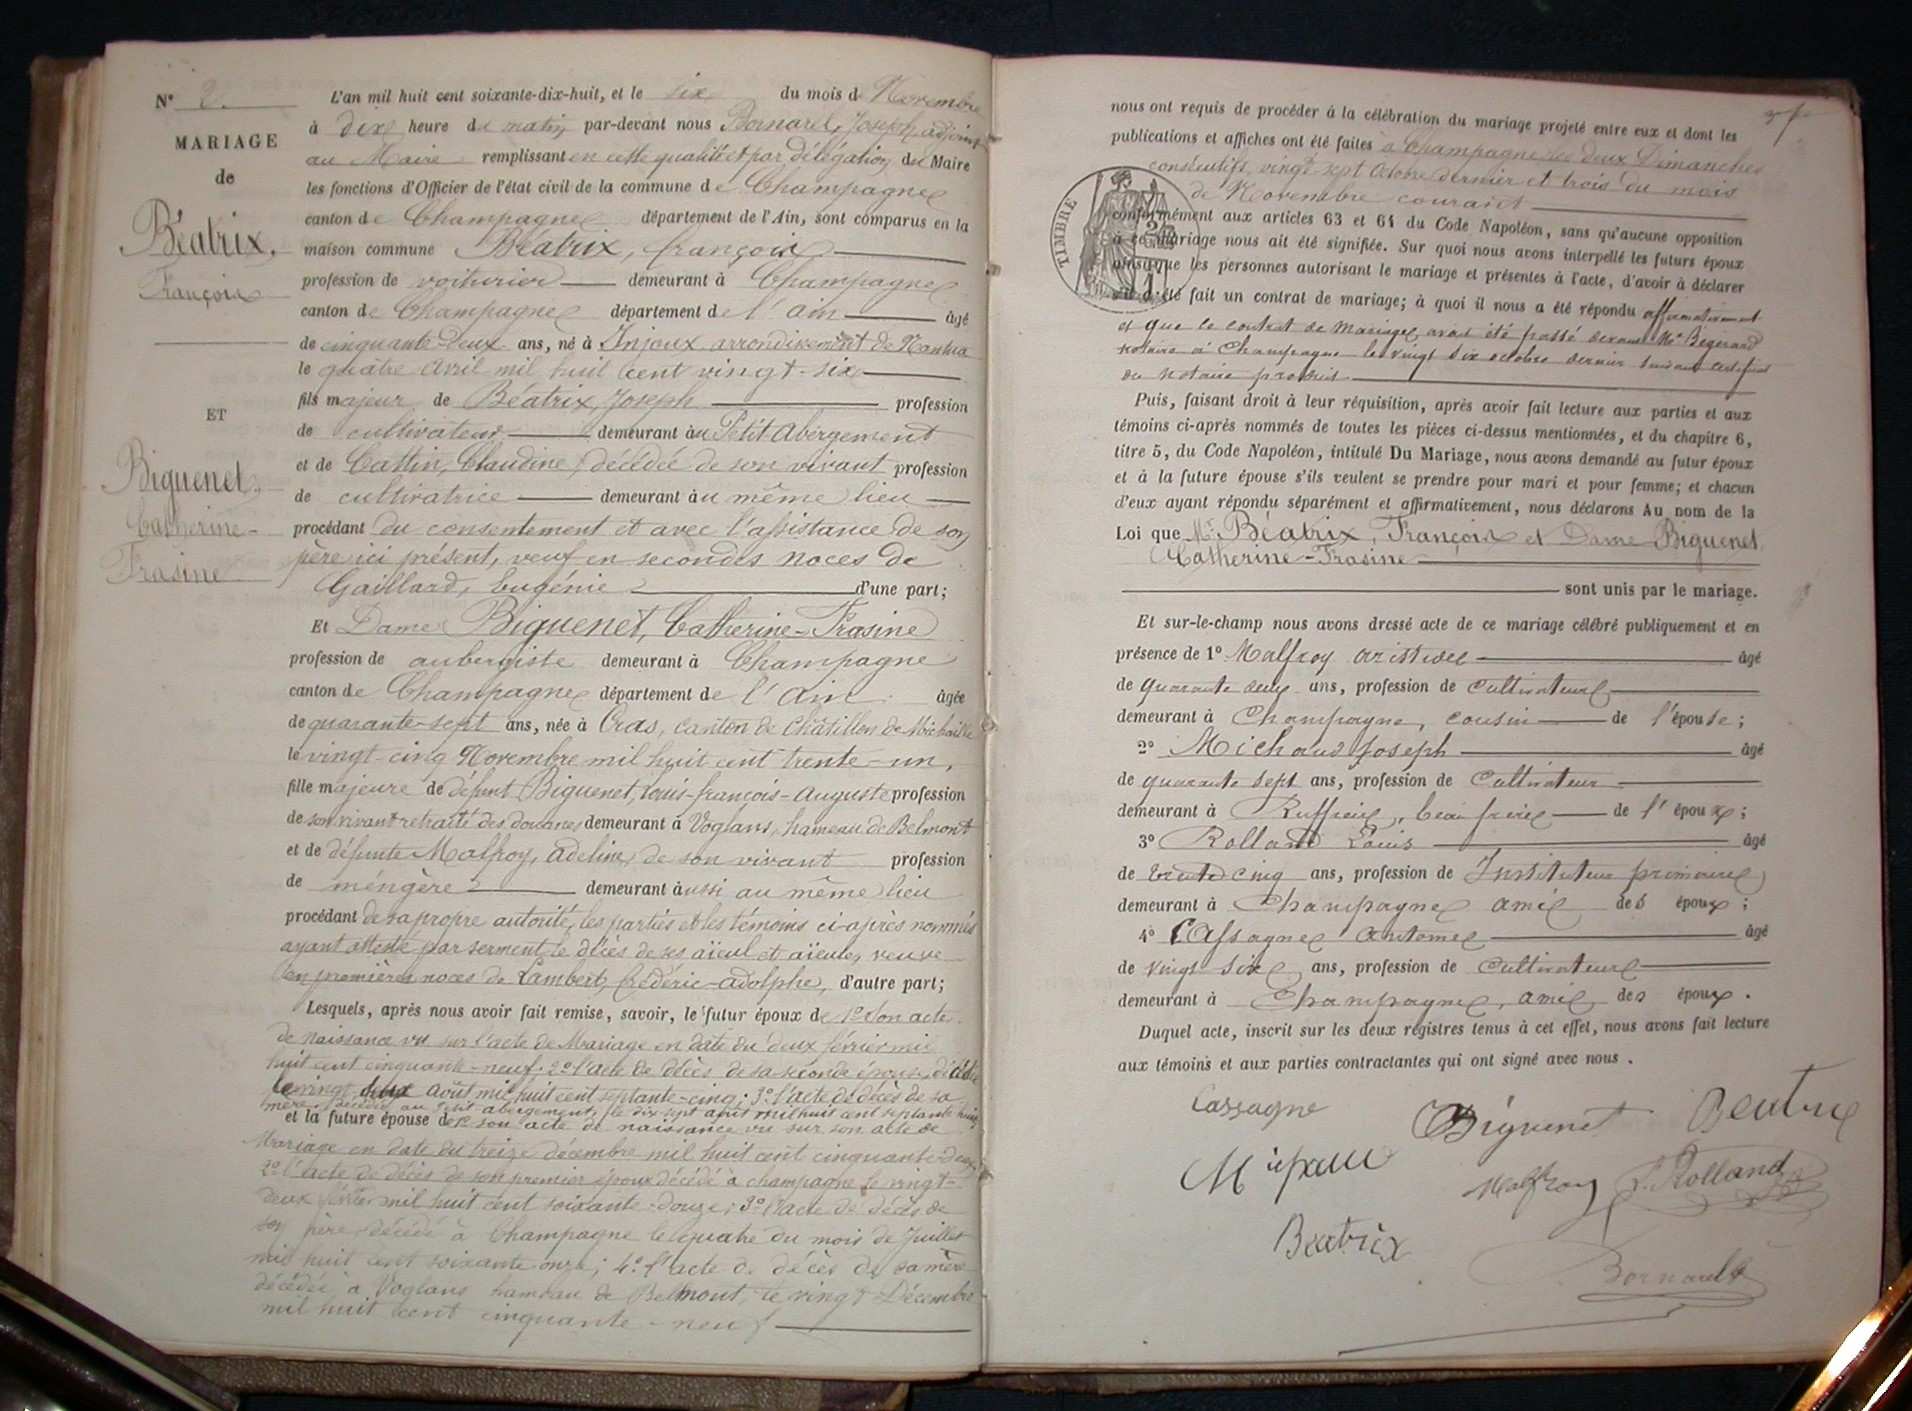 N° 2.
MARIAGE
de
Béatrix,
François
ET
Biguenet,
Catherine-
Frasine
L'an mil huit cent soixante-dix-huit, et le six du mois de Novembre
à dix heure du matin par-devant nous Bornarel, Joseph adjoint
au Maire remplissant en cette qualité et par délégation du Maire
les fonctions d'Officier de l'état civil de la commune de Champagne
canton de Champagne département de l'Ain, sont comparus en la
maison commune Béatrix, françois
profession de voiturier demeurant à Champagne
canton de Champagne département de l'ain âgé
de cinquante-deux ans, né à Injoux arrondissement de Nantua
le quatre avril mil huit cent vingt-six
fils majeur de Béatrix, Joseph profession
de cultivateur demeurant au Petit Abergement
et de Cattin, Claudine, décédée de son vivant profession
de cultivatrice demeurant au même lieu
procédant du consentement et avec l'assistance de son
père ici présent, veuf en secondes noces de
Gaillard, Eugénie d'une part;
Et Dame Biguenet, Catherine-Frasine
profession de aubergiste demeurant à Champagne
canton de Champagne département de l'ain âgée
de quarante-sept ans, née à Cras, canton de Châtillon de Michaille
le vingt-cinq Novembre mil huit cent trente-un,
fille majeure de défunt Biguenet, louis-françois-Auguste profession
de son vivant retraité des douanes demeurant à Voglans, hameau de Belmont
et de défunte Malfroy, adeline, de son vivant profession
de méngère demeurant aussi au même lieu
procédant de sa propre autorité, les parties et les témoins ci-après nommés
ayant attesté par serment le décès de ses aïeul et aïeule, veuve
en premières noces de Lambert, frédéric-adolphe, d'autre part;
Lesquels, après nous avoir fait remise, savoir, le futur époux de 1° son acte
de naissance vu sur l'acte de Mariage en date du deux février mil
huit cent cinquante-neuf. 2° l'acte de décès de sa seconde épouse, décédée
le vingt deux août mil huit cent septante-cinq; 3° l'acte de décès de sa
mère, décédée au Petit abergement, le dix sept avril mil huit cent septante huit
et la future épouse de 1° son acte de naissance vu sur son acte de
Mariage en date du treize décembre mil huit cent cinquante-deux,
2° l'acte de décès de son premier époux décédé à champagne le vingt-
deux février mil huit cent soixante-douze; 3° l'acte de décès de
son père, décédé à Champagne le quatre du mois de Juillet
mil huit cent soixante onze; 4° l'acte de décès de sa mère
décédée à Voglans hameau de Belmont, le vingt Décembre
mil huit cent cinquante-neuf
nous ont requis de procéder à la célébration du mariage projeté entre eux et dont les
publications et affiches ont été faites à Champagne les deux Dimanches
consécutifs, vingt-sept Octobre dernier et trois du mois
de Novembre courant
TIMBRE
conformément aux articles 63 et 64 du Code Napoléon, sans qu'aucune opposition
à ce mariage nous ait été signifiée. Sur quoi nous avons interpellé les futurs époux
ainsi que les personnes autorisant le mariage et présentes à l'acte, d'avoir à déclarer
s'il a été fait un contrat de mariage; à quoi il nous a été répondu affirmativement
et que le contrat de mariage avait été passé devant Me Bigerand
notaire à Champagne le vingt six octobre dernier suivant certificat
du notaire produit
Puis, faisant droit à leur réquisition, après avoir fait lecture aux parties et aux
témoins ci-après nommés de toutes les pièces ci-dessus mentionnées, et du chapitre 6,
titre 5, du Code Napoléon, intitulé Du Mariage, nous avons demandé au futur époux
et à la future épouse s'ils veulent se prendre pour mari et pour femme; et chacun
d'eux ayant répondu séparément et affirmativement, nous déclarons Au nom de la
Loi que Mr. Béatrix, François et Dame Biguenet,
Catherine-Frasine
sont unis par le mariage.
Et sur-le-champ nous avons dressé acte de ce mariage célébré publiquement et en
présence de 1° Malfroy aristide âgé
de quarante deux ans, profession de cultivateur
demeurant à Champagne, cousin de l'épouse;
2° Michaud Joseph âgé
de quarante sept ans, profession de Cultivateur
demeurant à Ruffieu, beau frère de l'époux;
3° Rolland Louis âgé
de trente cinq ans, profession de Instituteur primaire
demeurant à Champagne ami des époux;
4° Cassagne antoine âgé
de vingt six ans, profession de Cultivateur
demeurant à Champagne, ami des époux.
Duquel acte, inscrit sur les deux registres tenus à cet effet, nous avons fait lecture
aux témoins et aux parties contractantes qui ont signé avec nous.
Cassagne
Biguenet
Beatrix
Malfroy
L. Rolland
Beatrix
Bornarel